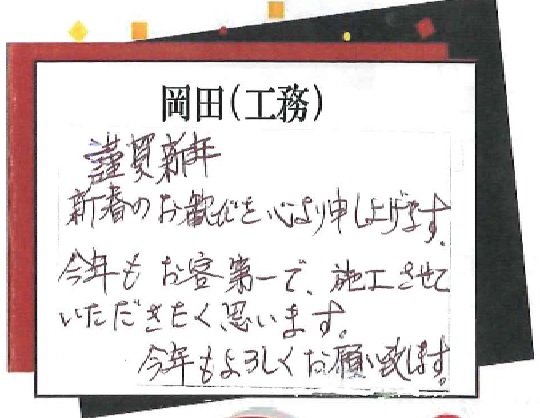 岡田(工務)
謹賀新年
新春のお歓びを心より申し上げます。
今年もお客第一で、施工させて
いただきたく思います。
今年もよろしくお願い致します。